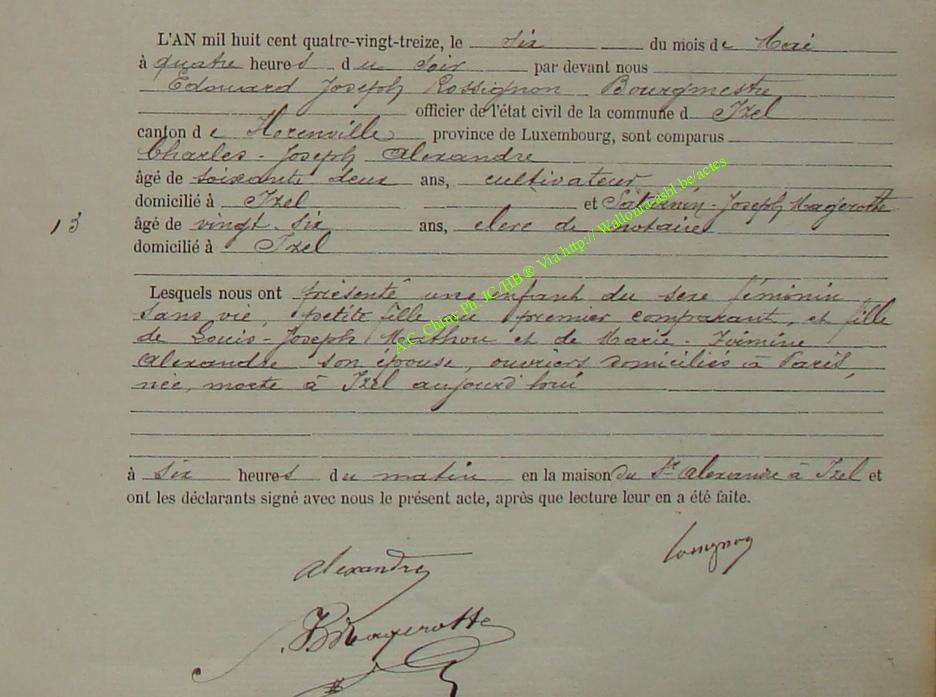 L'AN mil huit cent quatre-vingt-treize, le six du mois de Mai
à quatre heures du soir par devant nous
Edouard Joseph Rossignon Bourgmestre
officier de l'état civil de la commune d Izel
canton de Florenville province de Luxembourg, sont comparus
Charles-Joseph Alexandre
âgé de soixante deux ans, cultivateur
domicilié à Izel et Saturnin-Joseph Magerotte
13 âgé de vingt-six ans, clerc de notaire
domicilié à Izel
Lesquels nous ont présenté un enfant du sexe féminin
sans vie, petite fille du premier comparant, et fille
de Louis-Joseph Mathou et de Marie-Firmine
Alexandre son épouse, ouvriers domiciliés à Paris,
née, morte à Izel aujourd'hui
à six heures du matin en la maison du Sr Alexandre à Izel et
ont les déclarants signé avec nous le présent acte, après que lecture leur en a été faite.
Alexandre
Magerotte
A.C. Chiny Ph. JC/HB ® Via http:// Wallonia-asbl.be/actes